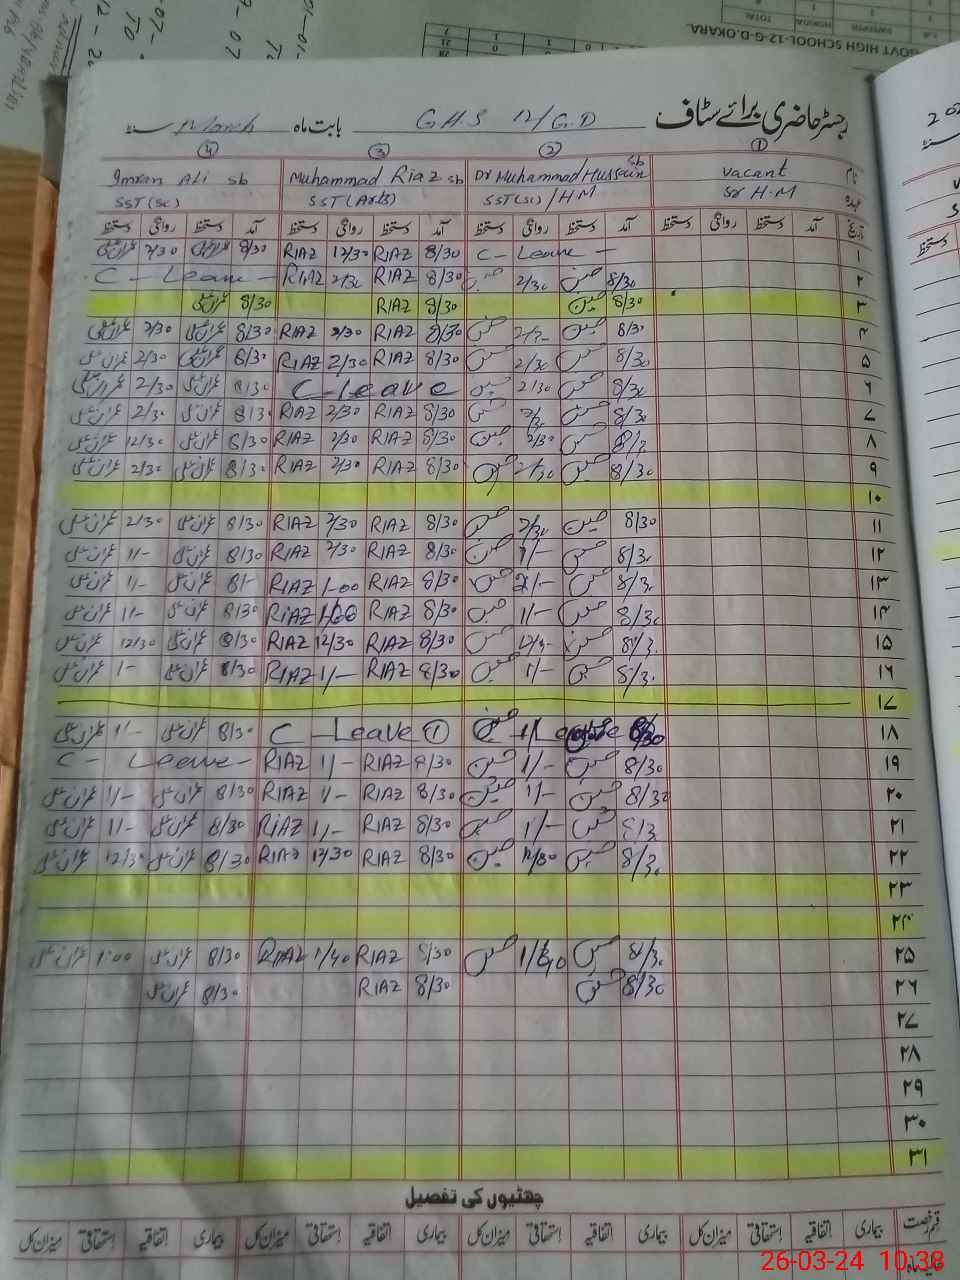 GOVT HIGH SCHOOL-12-G-D.OKARA
TOTAL
رجسٹر حاضری برائے سٹاف G.H.S 12/G.D بابت ماہ March سنہ
① ② ③ ④
نام vacant Dr Muhammad Hussain sb Muhammad Riaz sb Imran Ali sb
عہدہ Sr H.M SST(sc)/HM SST(Arts) SST(sc)
تاریخ آمد دستخط روانگی دستخط آمد دستخط روانگی دستخط آمد دستخط روانگی دستخط آمد دستخط روانگی دستخط
۱ C - Leave - 8/30 RIAZ 12/30 RIAZ 8/30 عمران علی
۲ 8/30 حسین 2/30 حسین 8/30 RIAZ 2/30 RIAZ C - Leave -
۳ 8/30 حسین 8/30 RIAZ 8/30 عمران علی
۴ 8/30 حسین 8/30 RIAZ 2/30 RIAZ 8/30 عمران علی 2/30 عمران علی
۵ 8/30 حسین 2/30 حسین 8/30 RIAZ 2/30 RIAZ 8/30 عمران علی 2/30 عمران علی
۶ 8/30 حسین 2/30 حسین C-Leave 8/30 عمران علی 2/30 عمران علی
۷ 8/30 حسین حسین 8/30 RIAZ 2/30 RIAZ 8/30 عمران علی 2/30 عمران علی
۸ حسین 2/30 حسین 8/30 RIAZ 2/30 RIAZ 8/30 عمران علی 12/30 عمران علی
۹ 8/30 حسین 2/30 حسین 8/30 RIAZ 2/30 RIAZ 8/30 عمران علی 2/30 عمران علی
۱۰
۱۱ 8/30 حسین 2/30 حسین 8/30 RIAZ 2/30 RIAZ 8/30 عمران علی 2/30 عمران علی
۱۲ 8/30 حسین 1/- حسین 8/30 RIAZ 2/30 RIAZ 8/30 عمران علی 1/- عمران علی
۱۳ 8/30 حسین 1/- حسین 8/30 RIAZ 1-00 RIAZ 8/- عمران علی 1/- عمران علی
۱۴ 8/30 حسین 1/- حسین 8/30 RIAZ 1/00 RIAZ 8/30 عمران علی 1/- عمران علی
۱۵ 8/30 حسین 12/30 حسین 8/30 RIAZ 12/30 RIAZ 8/30 عمران علی 12/30 عمران علی
۱۶ 8/30 حسین 1/- حسین 8/30 RIAZ 1/- RIAZ 8/30 عمران علی 1- عمران علی
۱۷
۱۸ 8/30 1/ حسین C-Leave ① 8/30 عمران علی 1- عمران علی
۱۹ 8/30 حسین 1/- حسین 8/30 RIAZ 1/- RIAZ C- Leave-
۲۰ 8/30 حسین 1/- حسین 8/30 RIAZ 1/- RIAZ 8/30 عمران علی 1/- عمران علی
۲۱ 8/30 حسین 1/- حسین 8/30 RIAZ 1/- RIAZ 8/30 عمران علی 1/- عمران علی
۲۲ 8/30 حسین 12/30 حسین 8/30 RIAZ 12/30 RIAZ 8/30 عمران علی 12/30 عمران علی
۲۳
۲۴
۲۵ 8/30 حسین 1/40 حسین 8/30 RIAZ 1/40 RIAZ 8/30 عمران علی 1:00 عمران علی
۲۶ 8/30 حسین 8/30 RIAZ 8/30 عمران علی
۲۷
۲۸
۲۹
۳۰
۳۱
چھٹیوں کی تفصیل
قسم رخصت بیماری اتفاقیہ استحقاقی میزان کل بیماری اتفاقیہ استحقاقی میزان کل بیماری اتفاقیہ استحقاقی میزان کل بیماری اتفاقیہ استحقاقی میزان کل
26-03-24 10:38